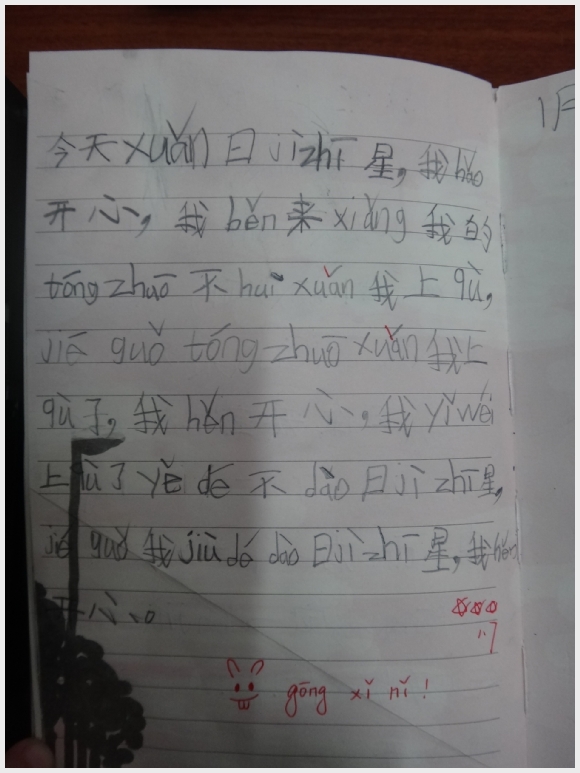 今天xuǎn日jìzhī星,我hǎo
开心,我běn来xiǎng我的
tóngzhuō不huì xuǎn我上qù,
jié guǒ tóngzhuō xuǎn我上
qù了,我hěn开心,我yǐwéi
上qù了yě dé不dào日jì zhī星,
jié guǒ我jiù dé dào日jì zhī星,我hěn
开心。
gōng xǐ nǐ!
1月